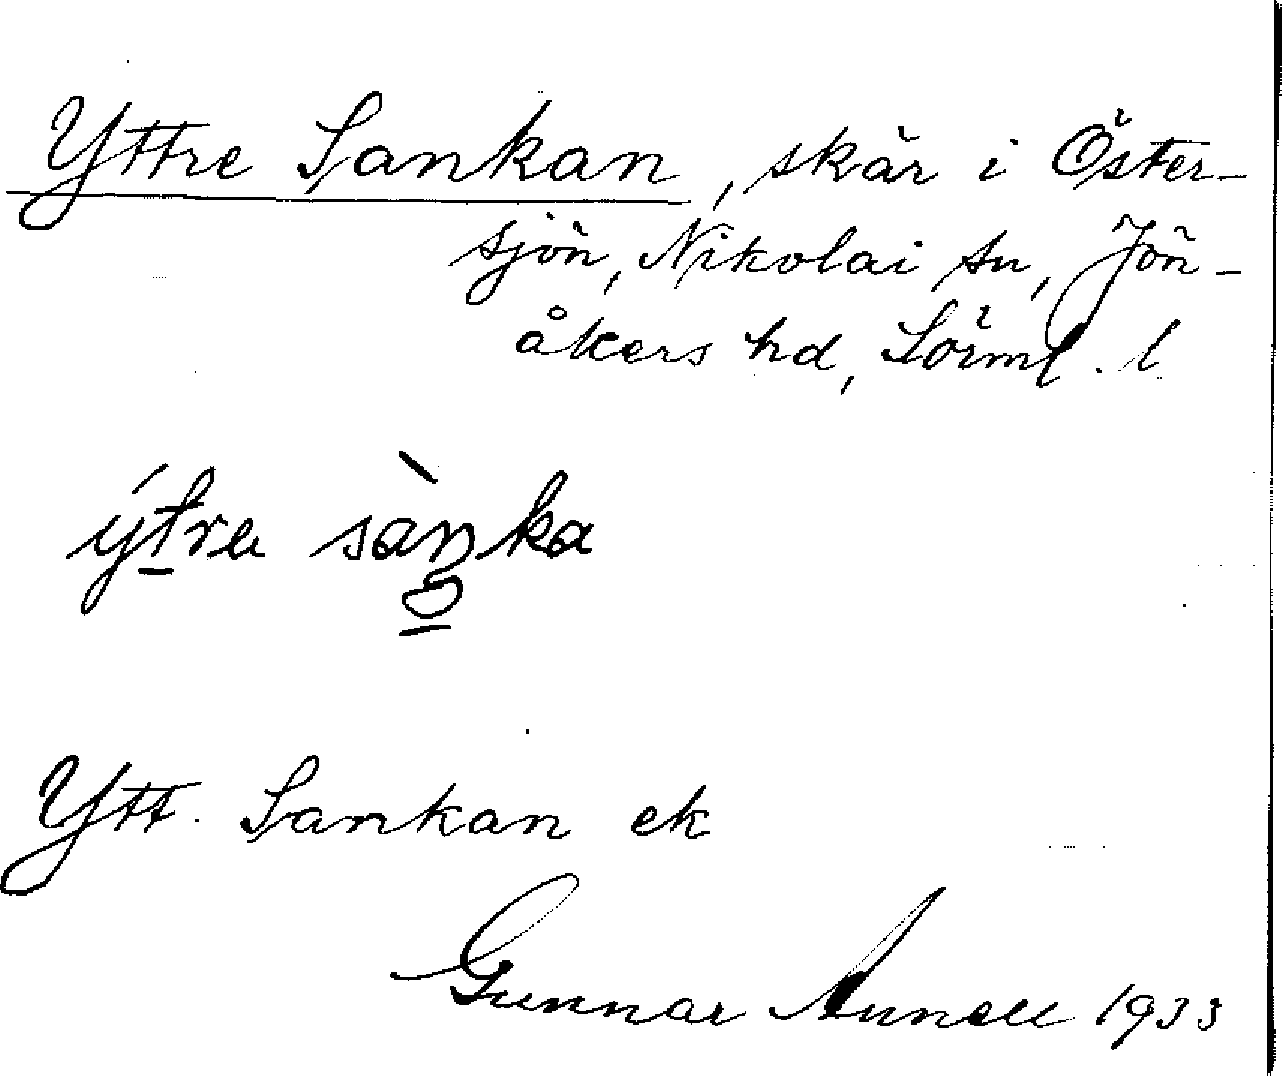 Yttre Sankan, skär i Öster-
sjön, Nikolai sn, Jön-
åkers hd, Sörml. l
ýtrа sàŋka
Ytt. Sankan ek
Gunnar Annell 1933